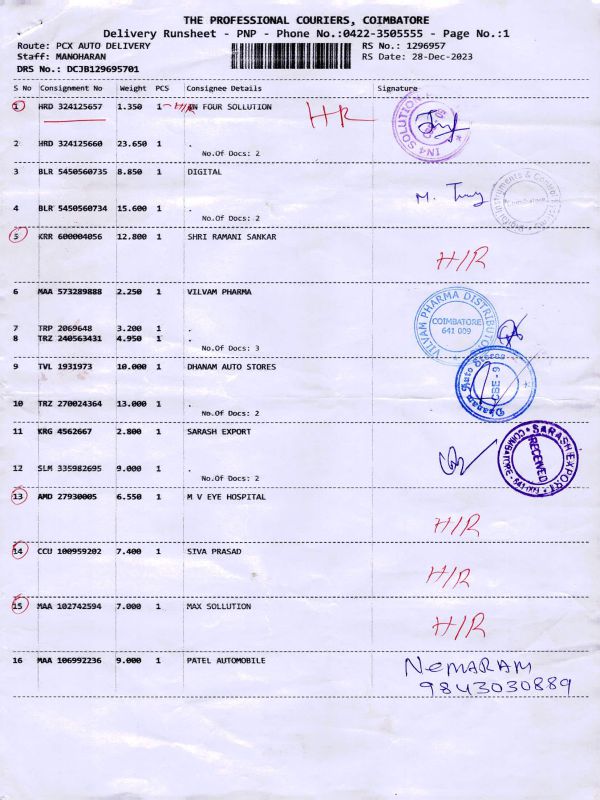 THE PROFESSIONAL COURIERS, COIMBATORE
Delivery Runsheet - PNP - Phone No.:0422-3505555 - Page No.:1
Route: PCX AUTO DELIVERY RS No.: 1296957
Staff: MANOHARAN RS Date: 28-Dec-2023
DRS No.: DCJB129695701
S No Consignment No Weight PCS Consignee Details Signature
1 HRD 324125657 1.350 1 H/R IN FOUR SOLLUTION H/R
IN4 SOLUTION
2 HRD 324125660 23.650 1 .
No.Of Docs: 2
3 BLR 5450560735 8.850 1 DIGITAL
Digital Instruments & Control
Coimbatore
4 BLR 5450560734 15.600 1 .
No.Of Docs: 2
5 KRR 600004056 12.800 1 SHRI RAMANI SANKAR
H/R
6 MAA 573289888 2.250 1 VILVAM PHARMA
VILVAM PHARMA DISTRIBUTOR
COIMBATORE
641 009
7 TRP 2069648 3.200 1 .
8 TRZ 240563431 4.950 1 .
No.Of Docs: 3
9 TVL 1931973 10.000 1 DHANAM AUTO STORES
Dhanam Auto Stores
CBE - 9
10 TRZ 270024364 13.000 1 .
No.Of Docs: 2
11 KRG 4562667 2.800 1 SARASH EXPORT
SARASH EXPORT
RECEIVED
COIMBATORE
12 SLM 335982695 9.000 1 .
No.Of Docs: 2
13 AMD 27930005 6.550 1 M V EYE HOSPITAL
H/R
14 CCU 100959202 7.400 1 SIVA PRASAD
H/R
15 MAA 102742594 7.000 1 MAX SOLLUTION
H/R
16 MAA 106992236 9.000 1 PATEL AUTOMOBILE NEMARAM
9843030889